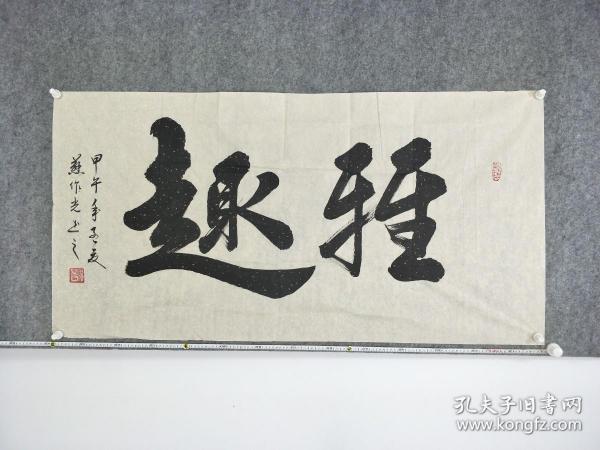 雅趣
甲午年孟夏
苏作光书之
孔夫子旧书网
www.kongfz.com